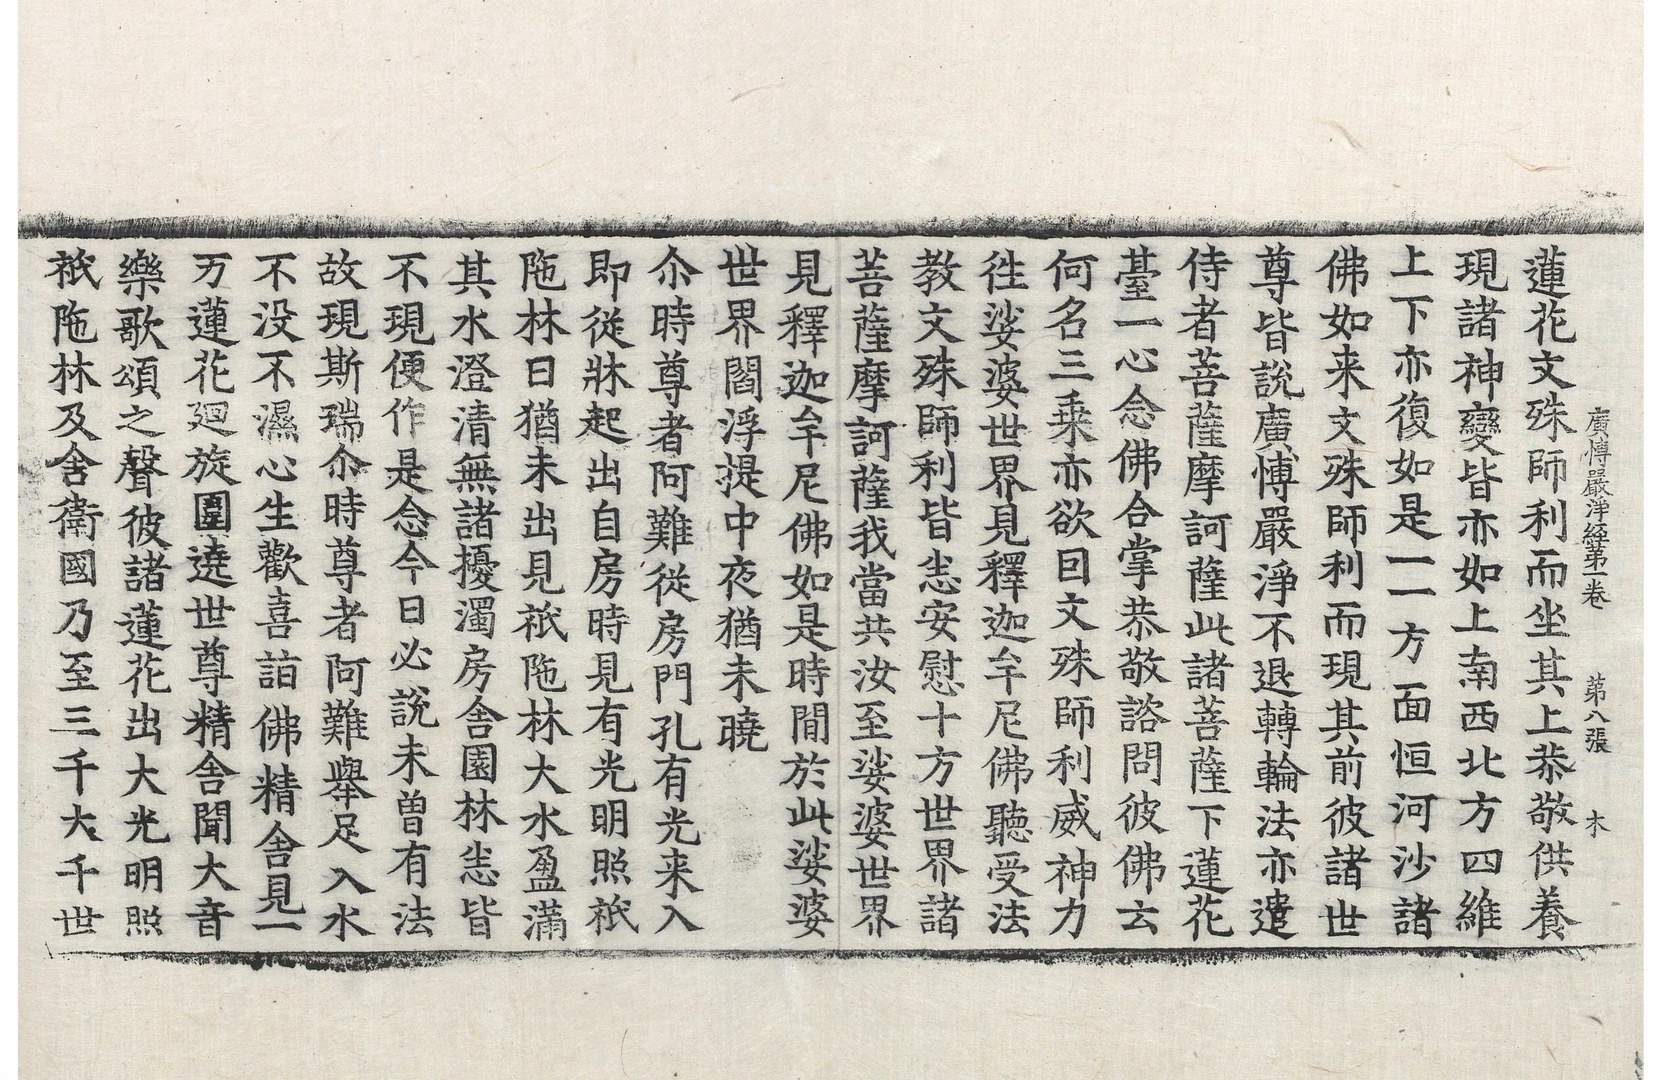 廣愽嚴淨経第一卷 第八張 木
蓮花文殊師利而坐其上恭敬供養
現諸神變皆亦如上南西北方四維
上下亦復如是一一方面恒河沙諸
佛如来文殊師利而現其前彼諸世
尊皆說廣愽嚴淨不退轉輪法亦遣
侍者菩薩摩訶薩此諸菩薩下蓮花
臺一心念佛合掌恭敬諮問彼佛云
何名三乗亦欲因文殊師利威神力
徃娑婆世界見釋迦牟尼佛聽受法
教文殊師利皆悉安慰十方世界諸
菩薩摩訶薩我當共汝至娑婆世界
見釋迦牟尼佛如是時閒於此娑婆
世界閻浮提中夜猶未曉
尒時尊者阿難從房門孔有光来入
即從牀起出自房時見有光明照祇
陁林日猶未出見祇陁林大水盈滿
其水澄清無諸擾濁房舍園林悉皆
不現便作是念今日必說未曽有法
故現斯瑞尒時尊者阿難舉足入水
不没不濕心生歡喜詣佛精舍見一
万蓮花廻旋圍遶世尊精舍聞大音
樂歌頌之聲彼諸蓮花出大光明照
祇陁林及舍衛國乃至三千大千世